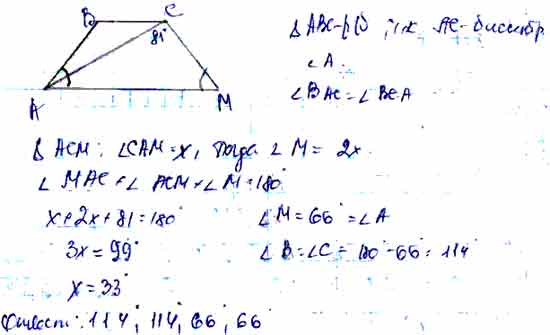 B C
81°
A M
Δ ABC - р/б, т.к. AC - биссектр.
∠A.
∠BAC = ∠BCA
Δ ACM: ∠CAM = x, тогда ∠M = 2x.
∠MAC + ∠ACM + ∠M = 180°
x + 2x + 81 = 180°
3x = 99°
x = 33°
∠M = 66° = ∠A
∠B = ∠C = 180° - 66° = 114°
Ответ: 114°, 114°, 66°, 66°